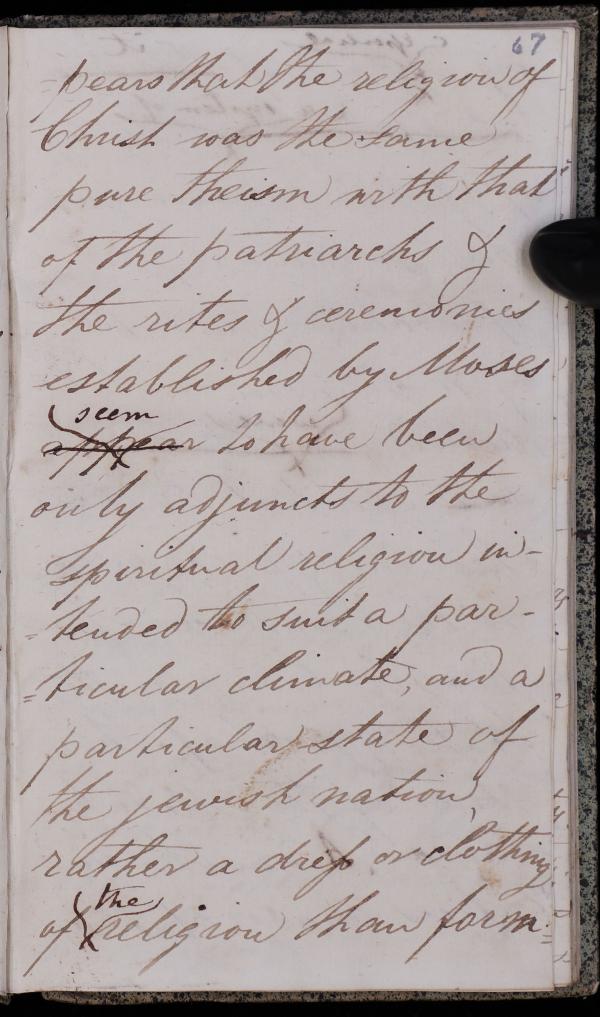 67
pears that the religion of
Christ was the same
pure theism with that
of the patriarchs &
the rites & ceremonies
established by Moses
seem
appear to have been
only adjuncts to the
spiritual religion in-
=tended to suit a par-
=ticular climate, and a
particular state of
the jewish nation,
rather a dress or clothing
the
of religion than form=